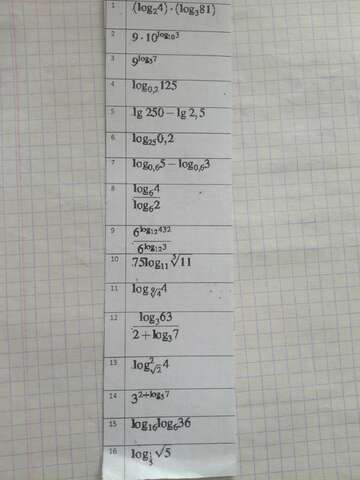 1 (log₂4)·(log₃81)
2 9·10^{log₁₀3}
3 9^{log₃7}
4 log_{0,2}125
5 lg 250 − lg 2,5
6 log₂₅0,2
7 log_{0,6}5 − log_{0,6}3
8 log₆4
log₆2
9 6^{log₁₂432}
6^{log₁₂3}
10 75log₁₁⁵√11
11 log 4
12 log₃63
2 + log₃7
13 log²_{√2}4
14 3^{2+log₃7}
15 log₁₆log₆36
16 log √5